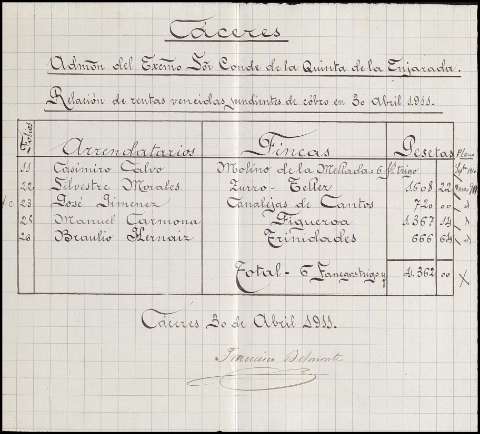 Cáceres
Admón del Excmo Sór Conde de la Quinta de la Enjarada.
Relación de rentas vencidas, pendientes de cóbro en 30 Abril 1911.
Folios Arrendatarios Fincas Pesetas
11 Casimiro Calvo Molino de la Mellada = 6 f. trigo
22 Silvestre Morales Zurro-Tellez 1608 22
23 José Jimenez Canalejas de Cantos 720 00
25 Manuel Carmona Figueroa 1.367 14
26 Braulio Hernaiz Trinidades 666 64
Total - 6 Fanegas trigo y 4.362 00
Cáceres 30 de Abril 1911.